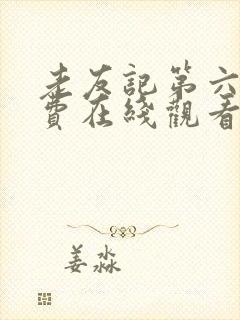 老友記第六
費在綫觀看
姜淼